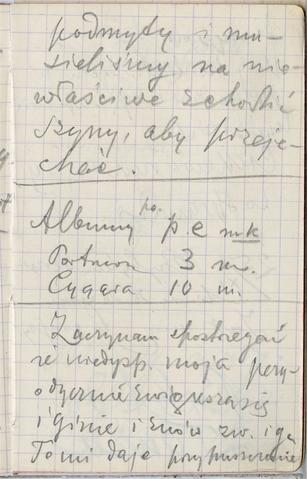 podmyty i mu-
sieliśmy na nie-
właściwe zchodzić
szyny, aby przeje-
chać.
Albumy po. p e mk
3 m.
Cygara 10 m.
Zaczynam spostrzegać
że niedysp. moja pery-
odycznie zwiększa się
i ginie i znów zw. i gi
To mi daje przypuszczenie